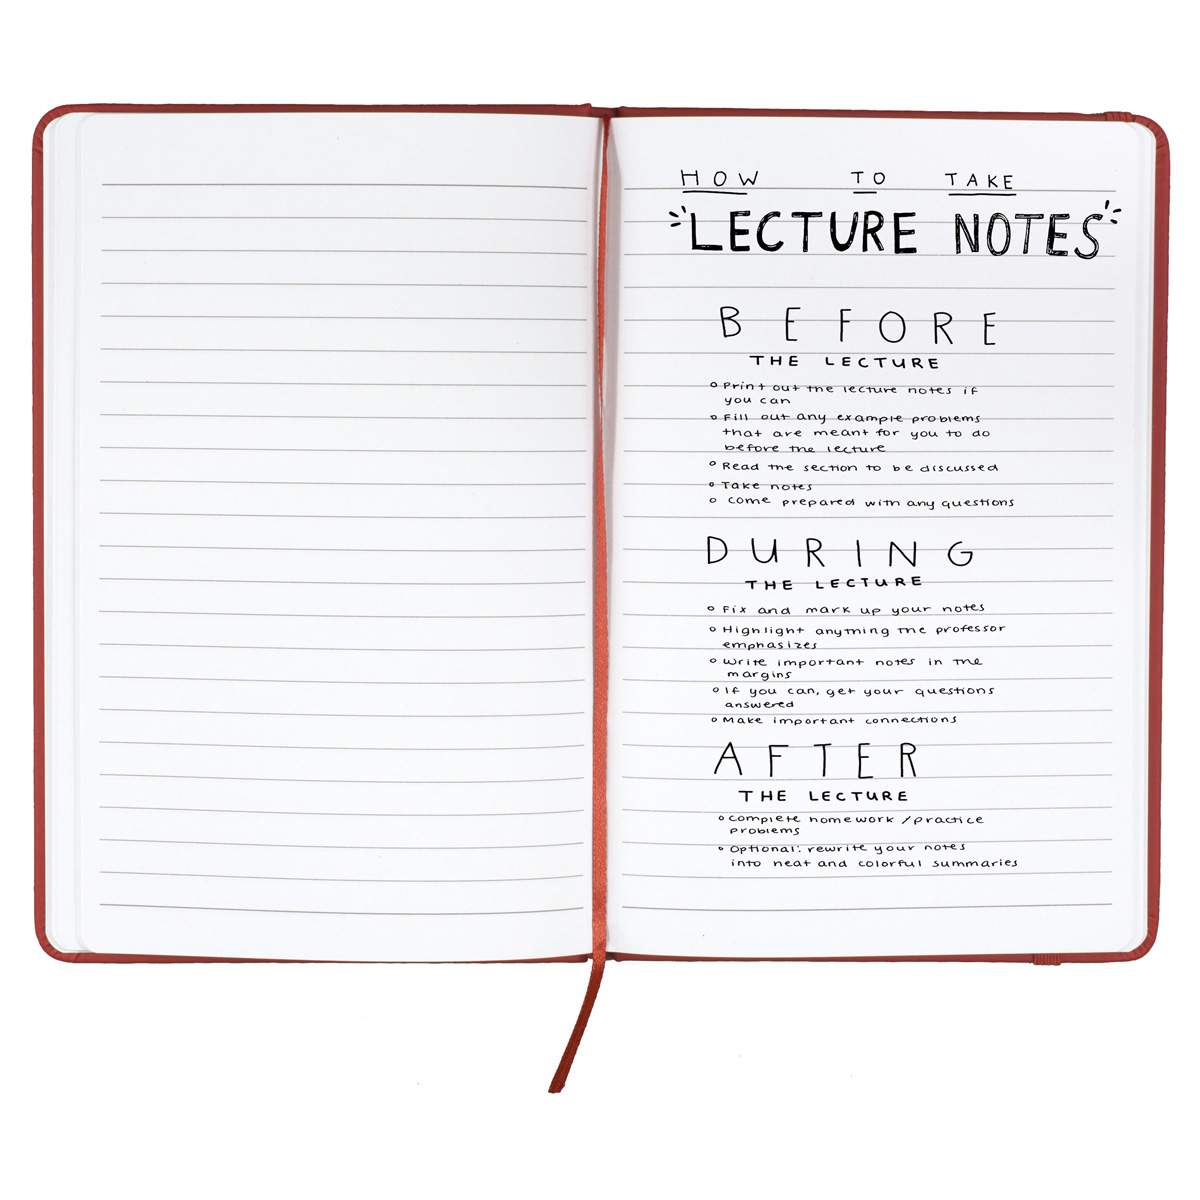 HOW TO TAKE
"LECTURE NOTES"
BEFORE
THE LECTURE
Print out the lecture notes if
you can
Fill out any example problems
that are meant for you to do
before the lecture
Read the section to be discussed
Take notes
Come prepared with any questions
DURING
THE LECTURE
Fix and mark up your notes
Highlight anything the professor
emphasizes
Write important notes in the
margins
If you can, get your questions
answered
Make important connections
AFTER
THE LECTURE
Complete homework / practice
problems
Optional: rewrite your notes
into neat and colorful summaries